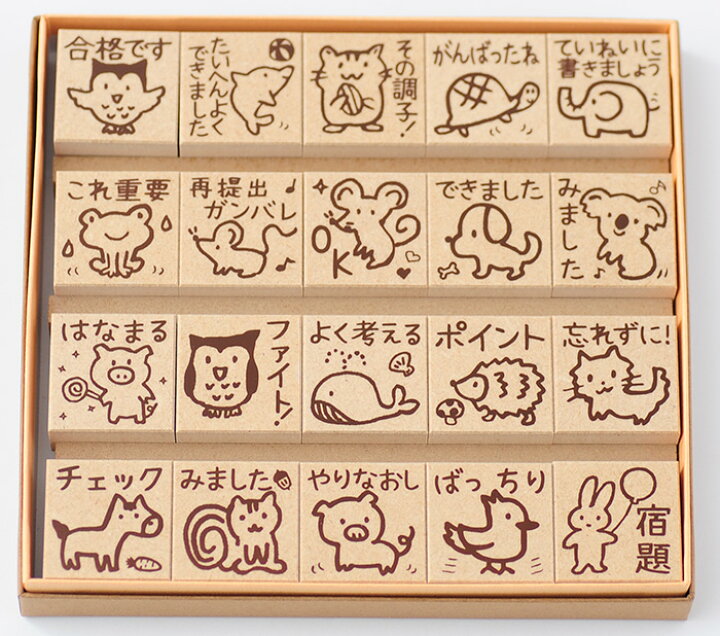 合格です
たいへんよく
できました
その調子!
がんばったね
ていねいに
書きましょう
これ重要
再提出
ガンバレ
OK
できました
みました
はなまる
ファイト!
よく考える
ポイント
忘れずに!
チェック
みました
やりなおし
ばっちり
宿題